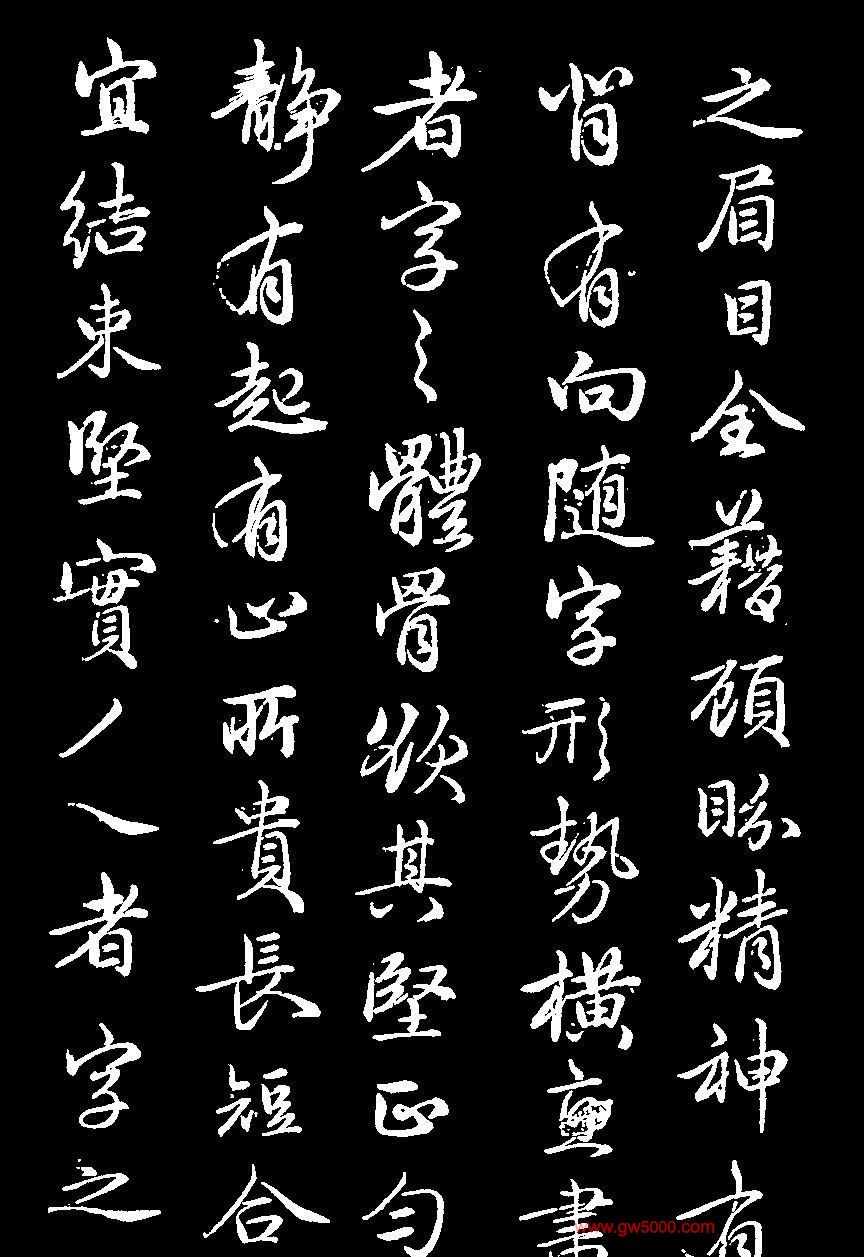 之眉目全藉顧盻精神有
背有向随字形勢橫直畫
者字之體骨欲其堅正勻
靜有起有止所貴長短合
宜結束堅實丿乀者字之
www.gw5000.com